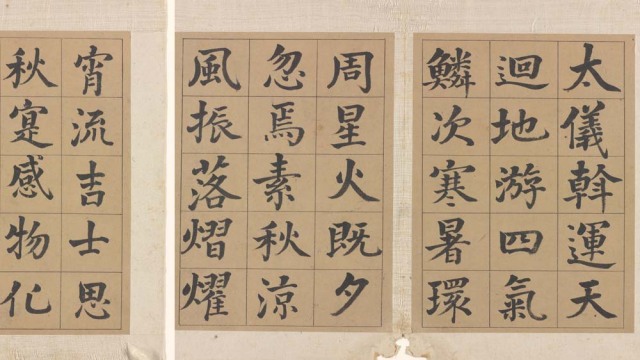 太儀斡運天
迴地游四氣
鱗次寒暑環
周星火既夕
忽焉素秋涼
風振落熠燿
宵流吉士思
秋寔感物化